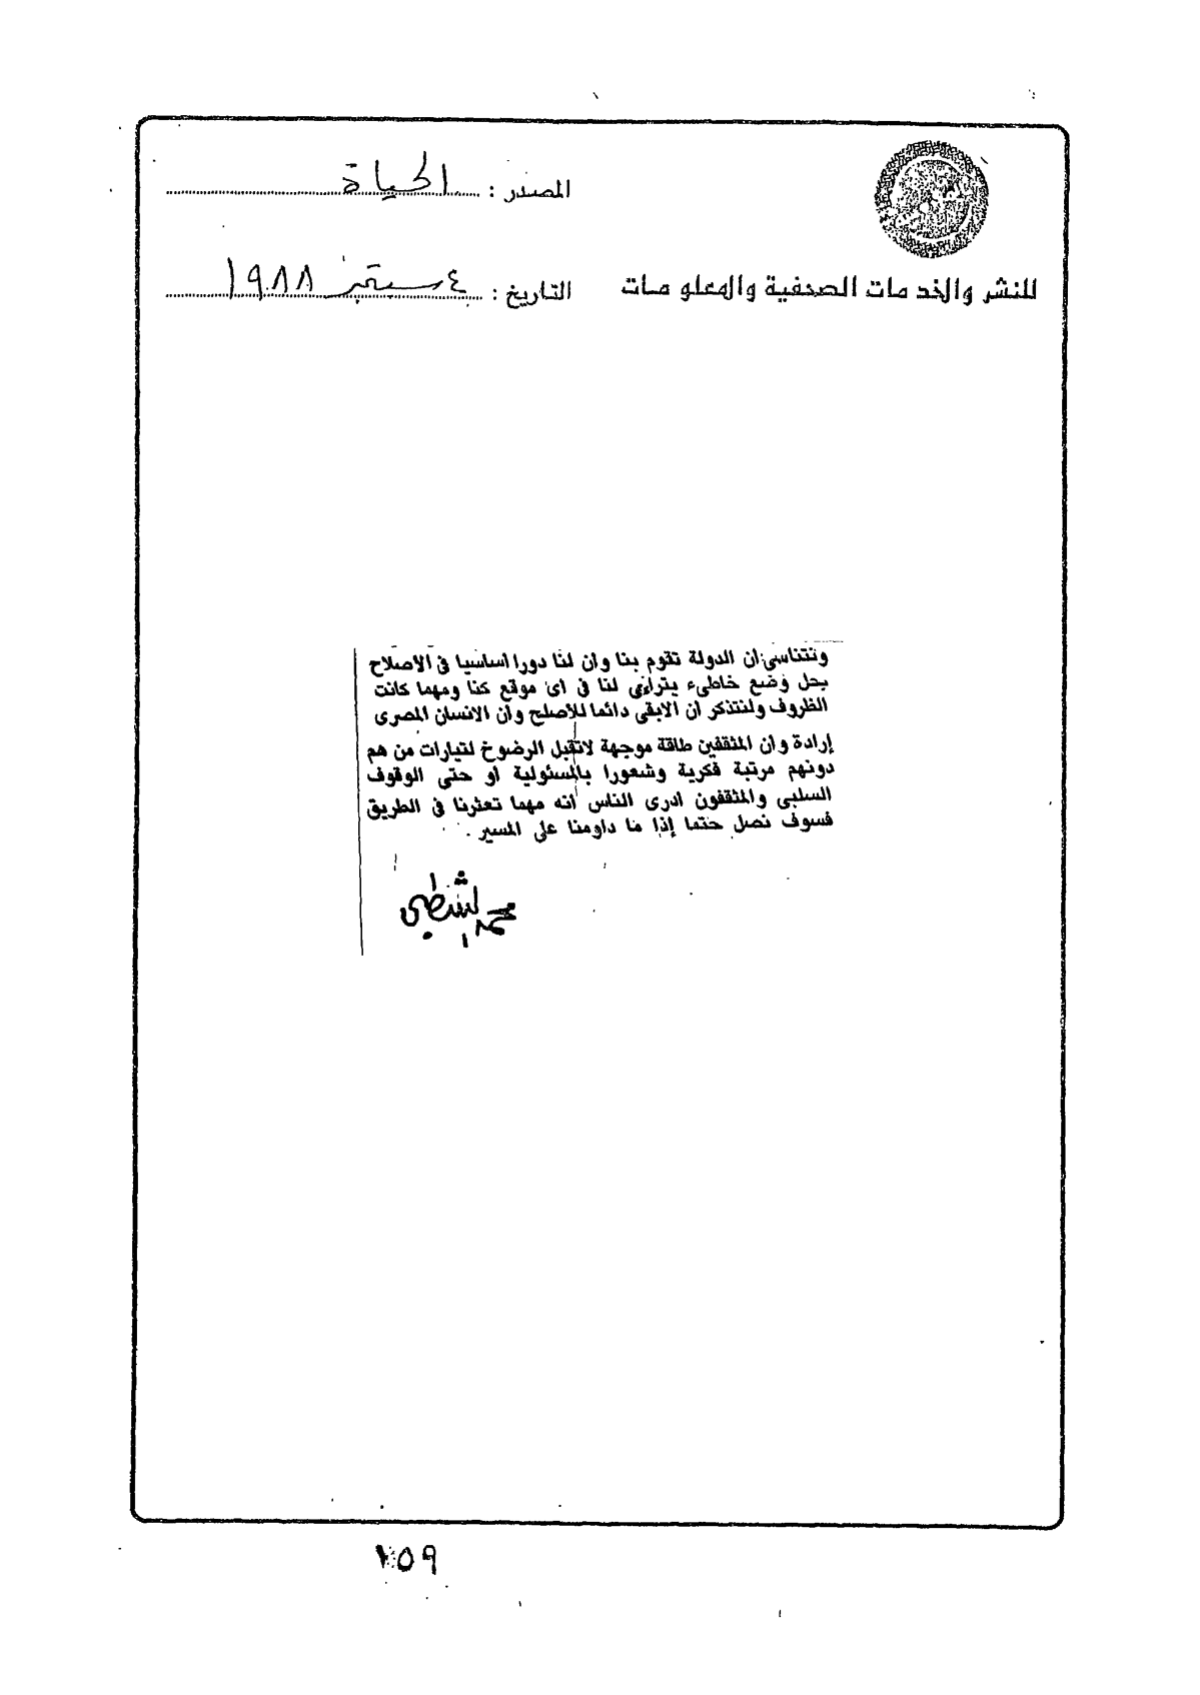 المصدر : الحياة
للنشر والخدمات الصحفية والمعلومات
التاريخ : ٤ سبتمبر ١٩٨٨
ونتناسى ان الدولة تقوم بنا وان لنا دورا اساسيا فى الاصلاح
بحل وضع خاطىء يتراءى لنا فى اى موقع كنا ومهما كانت
الظروف ولنتذكر ان الابقى دائما للأصلح وان الانسان المصرى
إرادة وان المثقفين طاقة موجهة لاتقبل الرضوخ لتيارات من هم
دونهم مرتبة فكرية وشعورا بالمسئولية او حتى الوقوف
السلبى والمثقفون ادرى الناس انه مهما تعثرنا فى الطريق
فسوف نصل حتما إذا ما داومنا على المسير .
محمد الشطبى